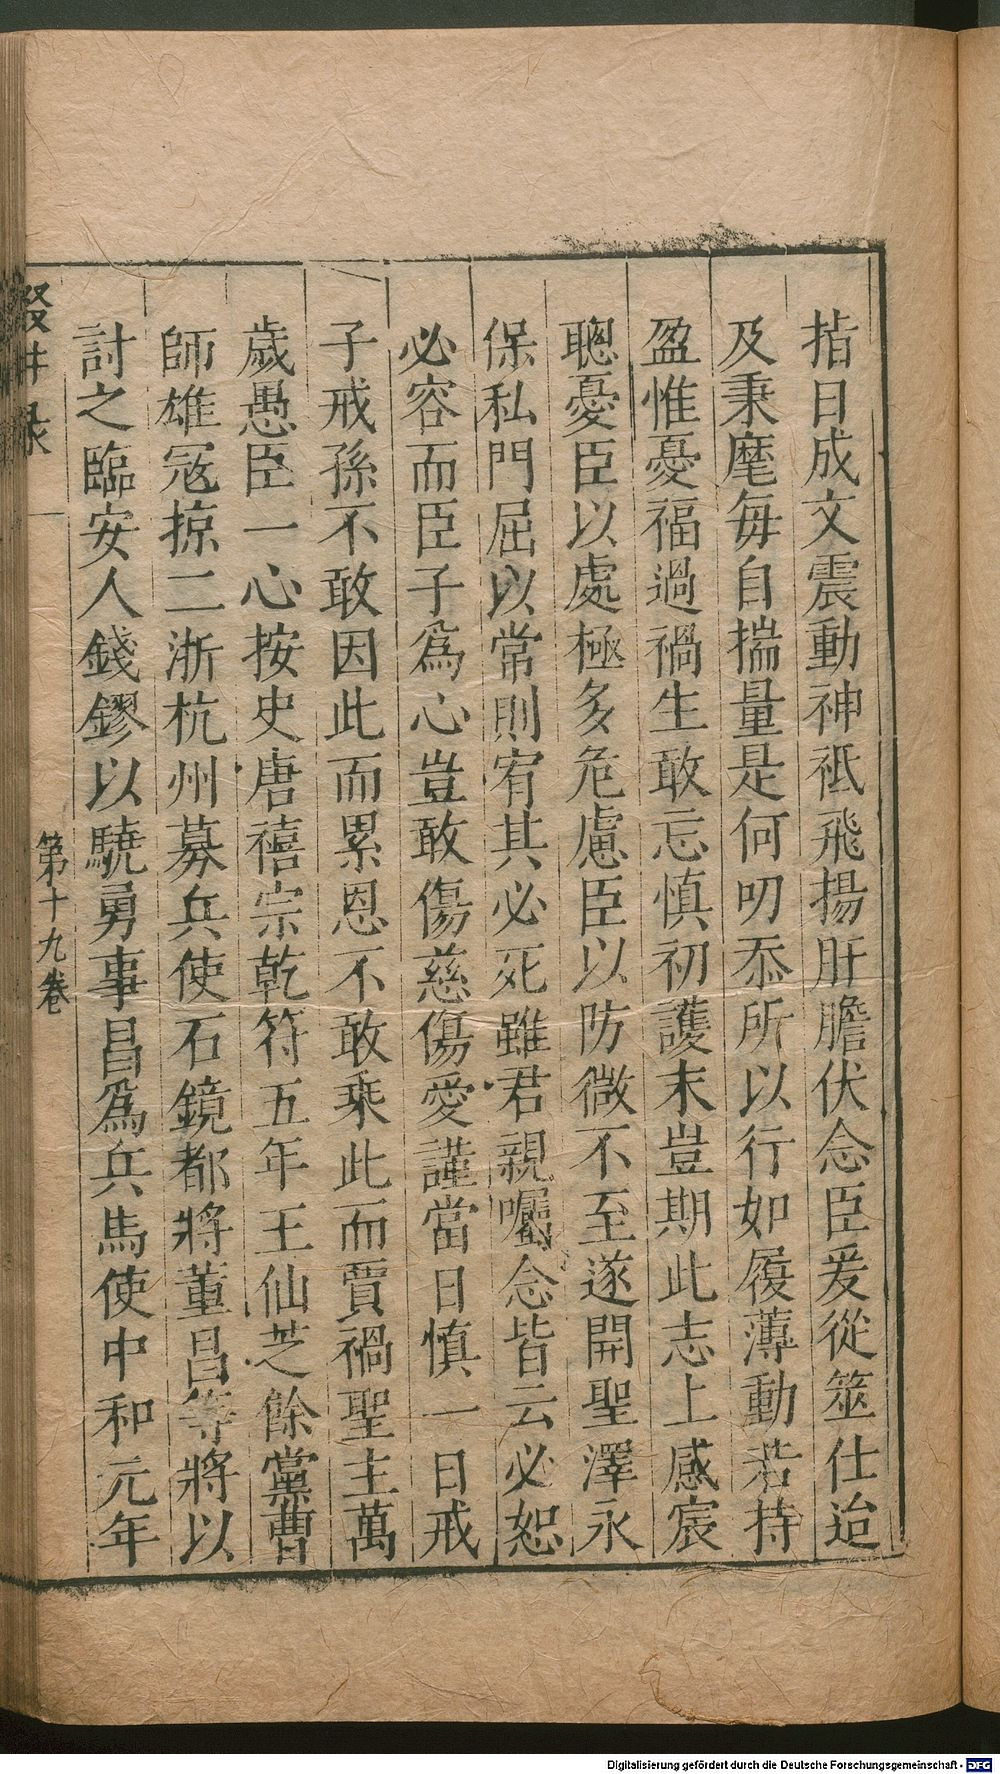 指日成文震動神祗飛揚肝膽伏念臣爰從筮仕迨
及秉麾每自揣量是何叨忝所以行如履薄動若持
盈惟憂福過禍生敢忘慎初護末豈期此志上感宸
聰憂臣以處極多危慮臣以防微不至遂開聖澤永
保私門屈以常則宥其必死雖君親囑念皆云必恕
必容而臣子爲心豈敢傷慈傷愛謹當日慎一日戒
子戒孫不敢因此而累恩不敢乘此而賈禍聖主萬
歲愚臣一心按史唐禧宗乾符五年王仙芝餘黨曹
師雄冦掠二浙杭州募兵使石鏡都將董昌等將以
討之臨安人錢鏐以驍勇事昌爲兵馬使中和元年
第十九卷
Digitalisierung gefördert durch die Deutsche Forschungsgemeinschaft - DFG